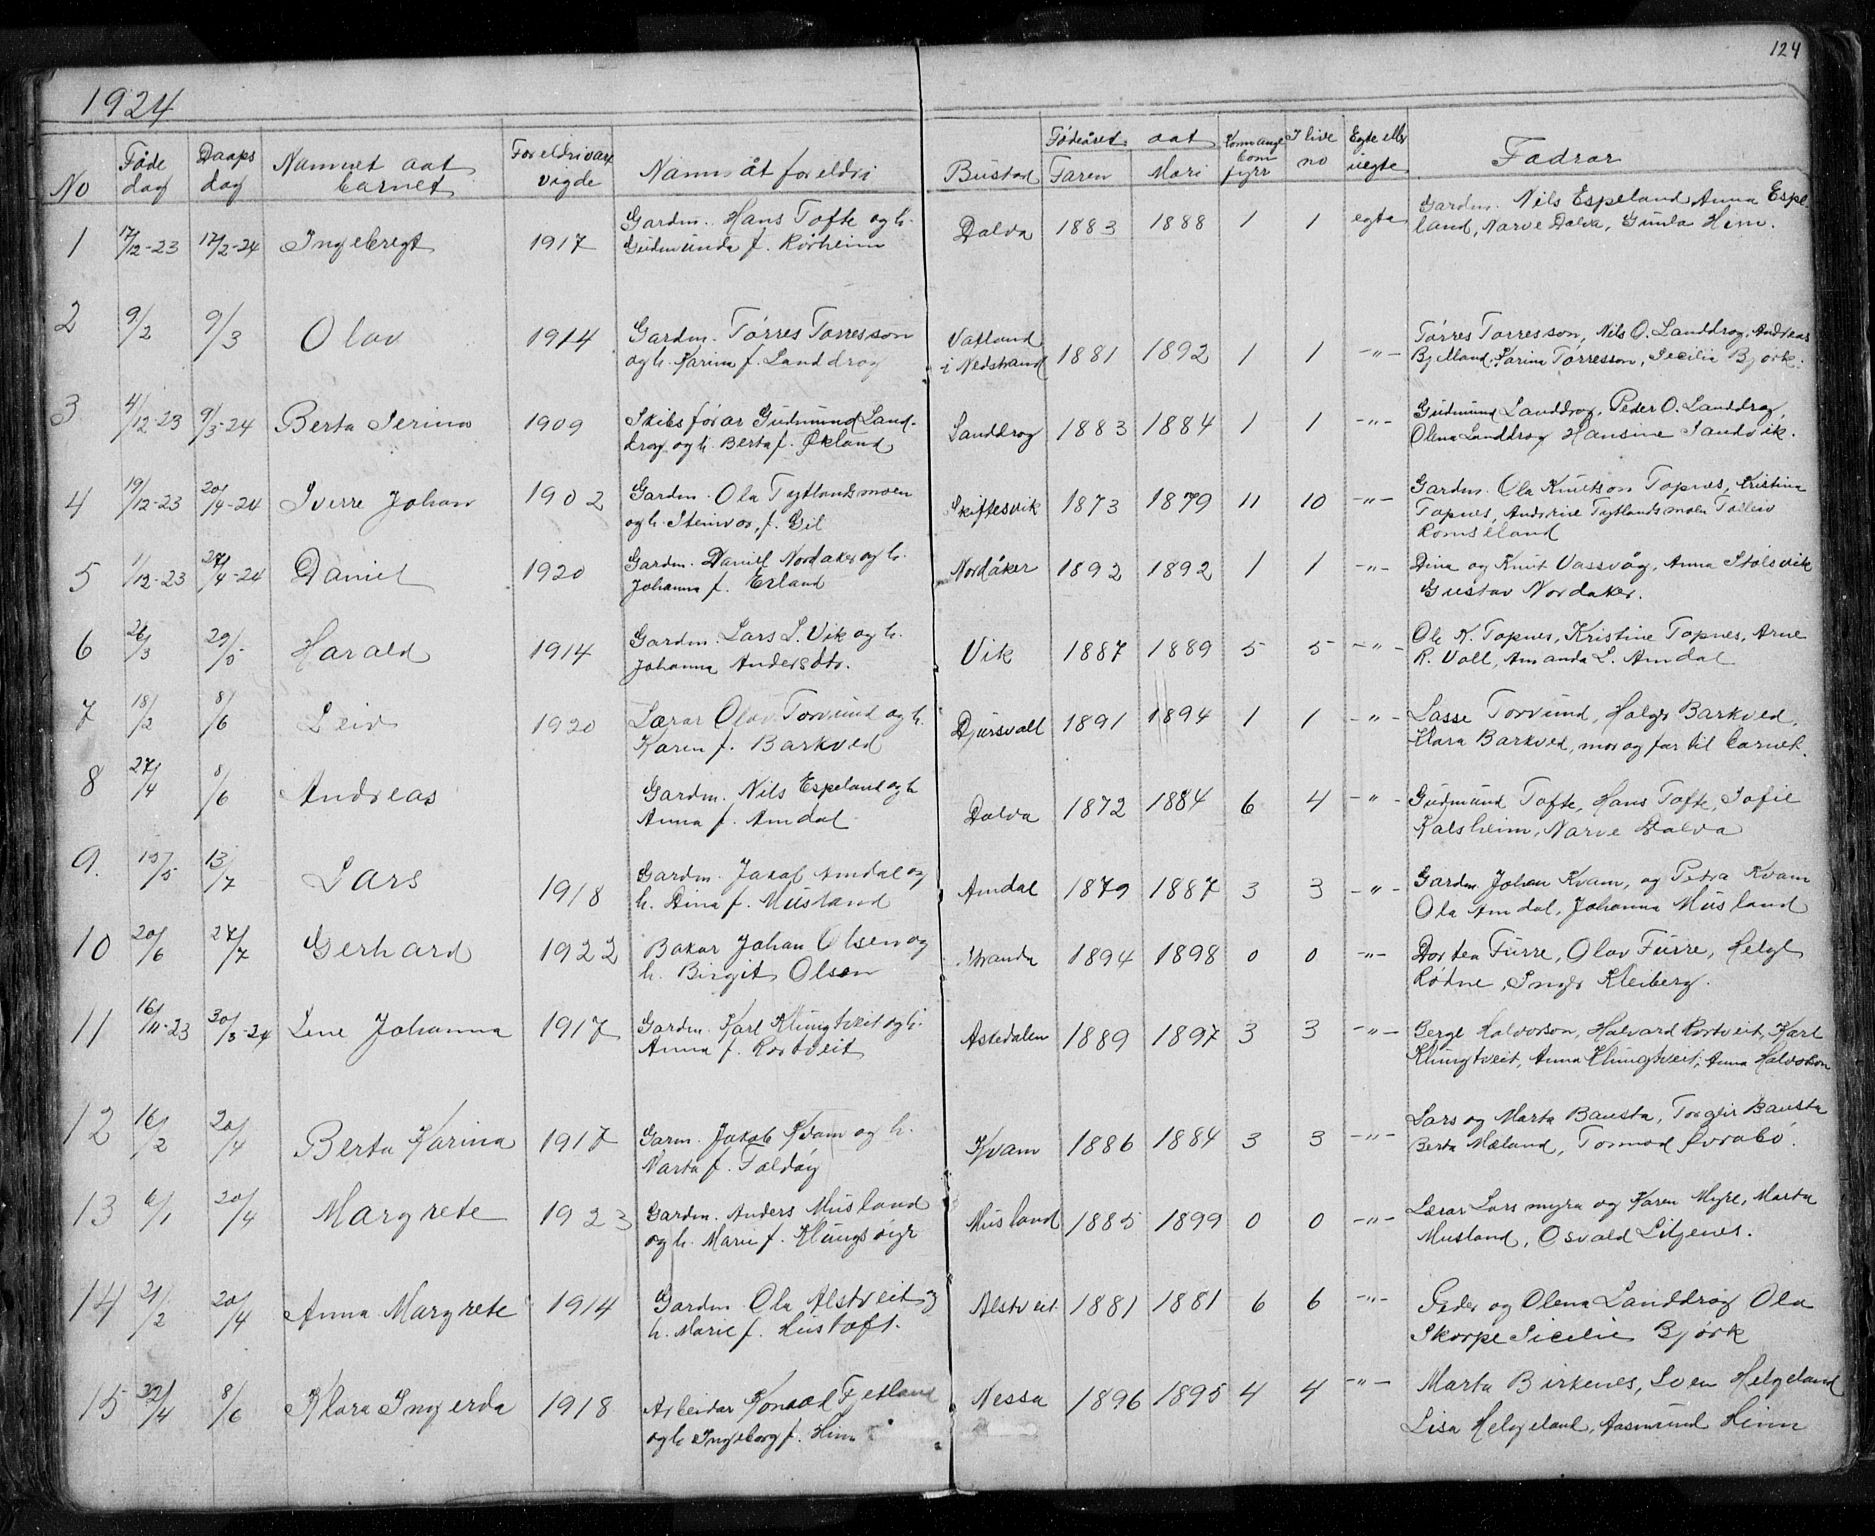 124
1924
No | Føde dag | Daaps dag | Namnet aat barnet | Foreldri var vigde | Namn åt foreldri | Bustad | Fødeåret aat Faren | Mori | I live no | Egte elle uegte | Fadrar
1 | 17/12-23 | 17/2-24 | Ingebregt | 1917 | Gardm. Hans Tofte og h. | Dalva | 1883 | 1888 | 1 | 1 | egte | Gardm. Nils Espeland, Anna Espe
Gudmunda f. Rørheim | land, Narve Dalva, Gunla Hem.
2 | 9/2 | 9/3 | Olav | 1914 | Gardm. Tørres Tørresson | Vatland | 1881 | 1892 | 1 | 1 | -"- | Tørres Tørresson, Nils O. Landdrog, Andreas
og h. Karina f. Landdrog | i Nedstrand | Bjelland, Karina Tørresson, Secilie Bjørk.
3 | 4/12-23 | 9/3-24 | Berta Serina | 1909 | Skibsførar Gudmund Land- | Landdrog | 1883 | 1884 | 1 | 1 | -"- | Gudmund Landdrog, Peder O. Landdrog,
drog og h. Berta f. Økland | Olena Landdrog Hansine Sandvik.
4 | 19/12-23 | 20/4-24 | Sverre Johan | 1902 | Gardm. Ola Tytlandsmoen | Skiftesvik | 1873 | 1879 | 11 | 10 | -"- | Gardm. Ola Knutson Topnes, Kristina
og h. Steinvor, f. Gil | Topnes, Andrine Tytlandsmoen Tolleiv
Romseland
5 | 1/12-23 | 27/4-24 | Daniel | 1920 | Gardm. Daniel Nordaker og h. | Nordåker | 1892 | 1892 | 1 | 1 | -"- | Dina og Knut Vassvåg, Anna Stolsvik
Johanna f. Erland | Gustav Nordaker.
6 | 26/3 | 29/5 | Harald | 1914 | Gardm. Lars L. Vik og h. | Vik | 1887 | 1889 | 5 | 5 | -"- | Ole K. Topnes, Kristine Topnes, Arne
Johanna Andersdtr. | R. Voll, Amanda L. Amdal
7 | 18/2 | 8/6 | Leiv | 1920 | Lærar Olav Torvund og h. | Djursvoll | 1891 | 1894 | 1 | 1 | -"- | Lasse Torvund, Holger Barkved,
Karen f. Barkved | Klara Barkved, mor og far til barnet.
8 | 27/4 | 8/6 | Andreas | Gardm. Nils Espeland og h | Dalva | 1872 | 1884 | 6 | 4 | -"- | Gudmund Tofte, Hans Tofte, Sofie
Anna f. Amdal | Kalsheim, Narve Dalva
9. | 15/5 | 13/7 | Lars | 1918 | Gardm. Jakob Amdal og | Amdal | 1879 | 1887 | 3 | 3 | -"- | Gardm. Johan Kvam, og Petra Kvam
h. Dina f. Musland | Ola Amdal, Johanna Musland
10 | 20/6 | 27/7 | Gerhard | 1922 | Bakar Johan Olsen og | Stranda | 1894 | 1898 | 0 | 0 | -"- | Dortea Furre, Olav Furre, Helge
h. Birgit Olsen | Rødne, Inger Kleiberg.
11 | 16/11-23 | 30/3-24 | Lene Johanna | 1917 | Gardm. Karl Klungtveit og h. | Askedalen | 1889 | 1897 | 3 | 3 | -"- | Halvorson, Halvard Rortveit, Karl
Anna f. Rortveit | Klungtveit, Anna Klungtveit, Anna Halvorson
12 | 16/2 | 20/4 | Berta Karina | 1917 | Garm. Jakob Kvam og h. | Kvam | 1886 | 1884 | 3 | 3 | -"- | Lars og Marta Bausta, Torgeir Bausta
Marta f. Foldøy | Berta Mæland, Tormod Øvrabø.
13 | 6/1 | 20/4 | Margrete | 1923 | Gardm. Anders Musland | Musland | 1885 | 1899 | 0 | 0 | -"- | Lærar Lars myra og Karen Myre, Marta
og h. Marie f. Klungsøyr | Musland, Osvald Litjenes.
14 | 21/2 | 20/4 | Anna Margrete | 1914 | Gardm. Ola Alstveit og | Alstveit | 1881 | 1881 | 6 | 6 | -"- | Peder og Olena Landdrog Ola
h. Marie f. Hustoft. | Skorpe Sicilie Bjørk
15 | 4 | 8/6 | Klara Ingerda | 1918 | Arbeidar Konrad Fjetland | Nessa | 1896 | 1895 | 4 | 4 | -"- | Marta Birkenes, Sven Helgeland
og h Ingeborg f. Him | Lisa Helgeland, Aasmund Heim